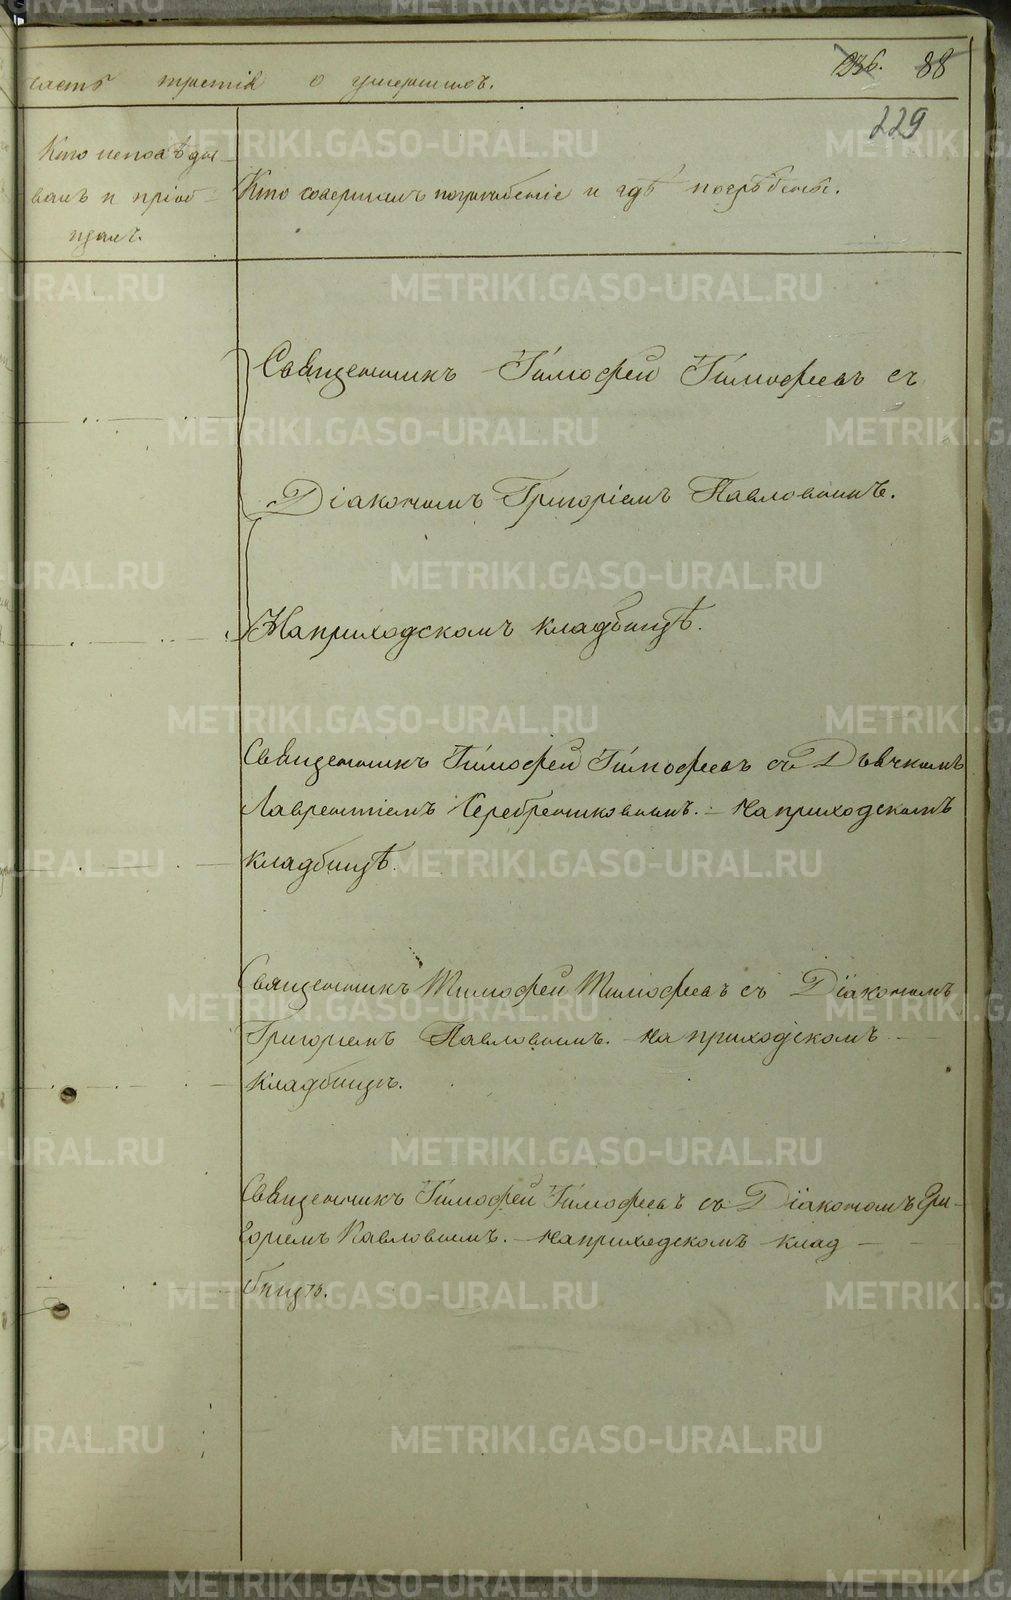 часть третія о умершихъ. 236. 88
229
Кто исповѣды-
валъ и пріоб-
щалъ.
Кто совершалъ погребеніе и гдѣ погрѣбены.
Священникъ Тимофей Тимофеевъ съ
Діакономъ Григоріемъ Павловымъ.
На приходскомъ кладбищѣ.
Священникъ Тимофей Тимофеевъ съ Дьячкомъ
Лаврентіемъ Серебренниковымъ. – На приходскомъ
кладбищѣ.
Священникъ Тимофей Тимофеевъ съ Діакономъ
Григоріемъ Павловымъ. На приходскомъ
кладбищъ.
Священникъ Тимофей Тимофеевъ съ Діакономъ Гри-
горіемъ Павловымъ. – На приходскомъ клад-
бищъ.
METRIKI.GASO-URAL.RU